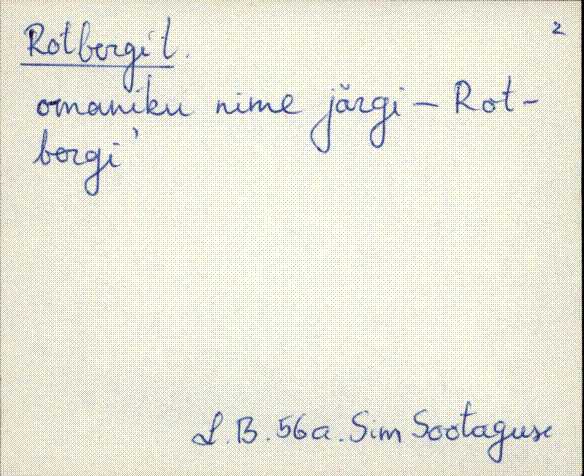 2
Rotbergi't.
omaniku nime järgi – Rot-
bergi'
L.B. 56a. Sim Sootaguse